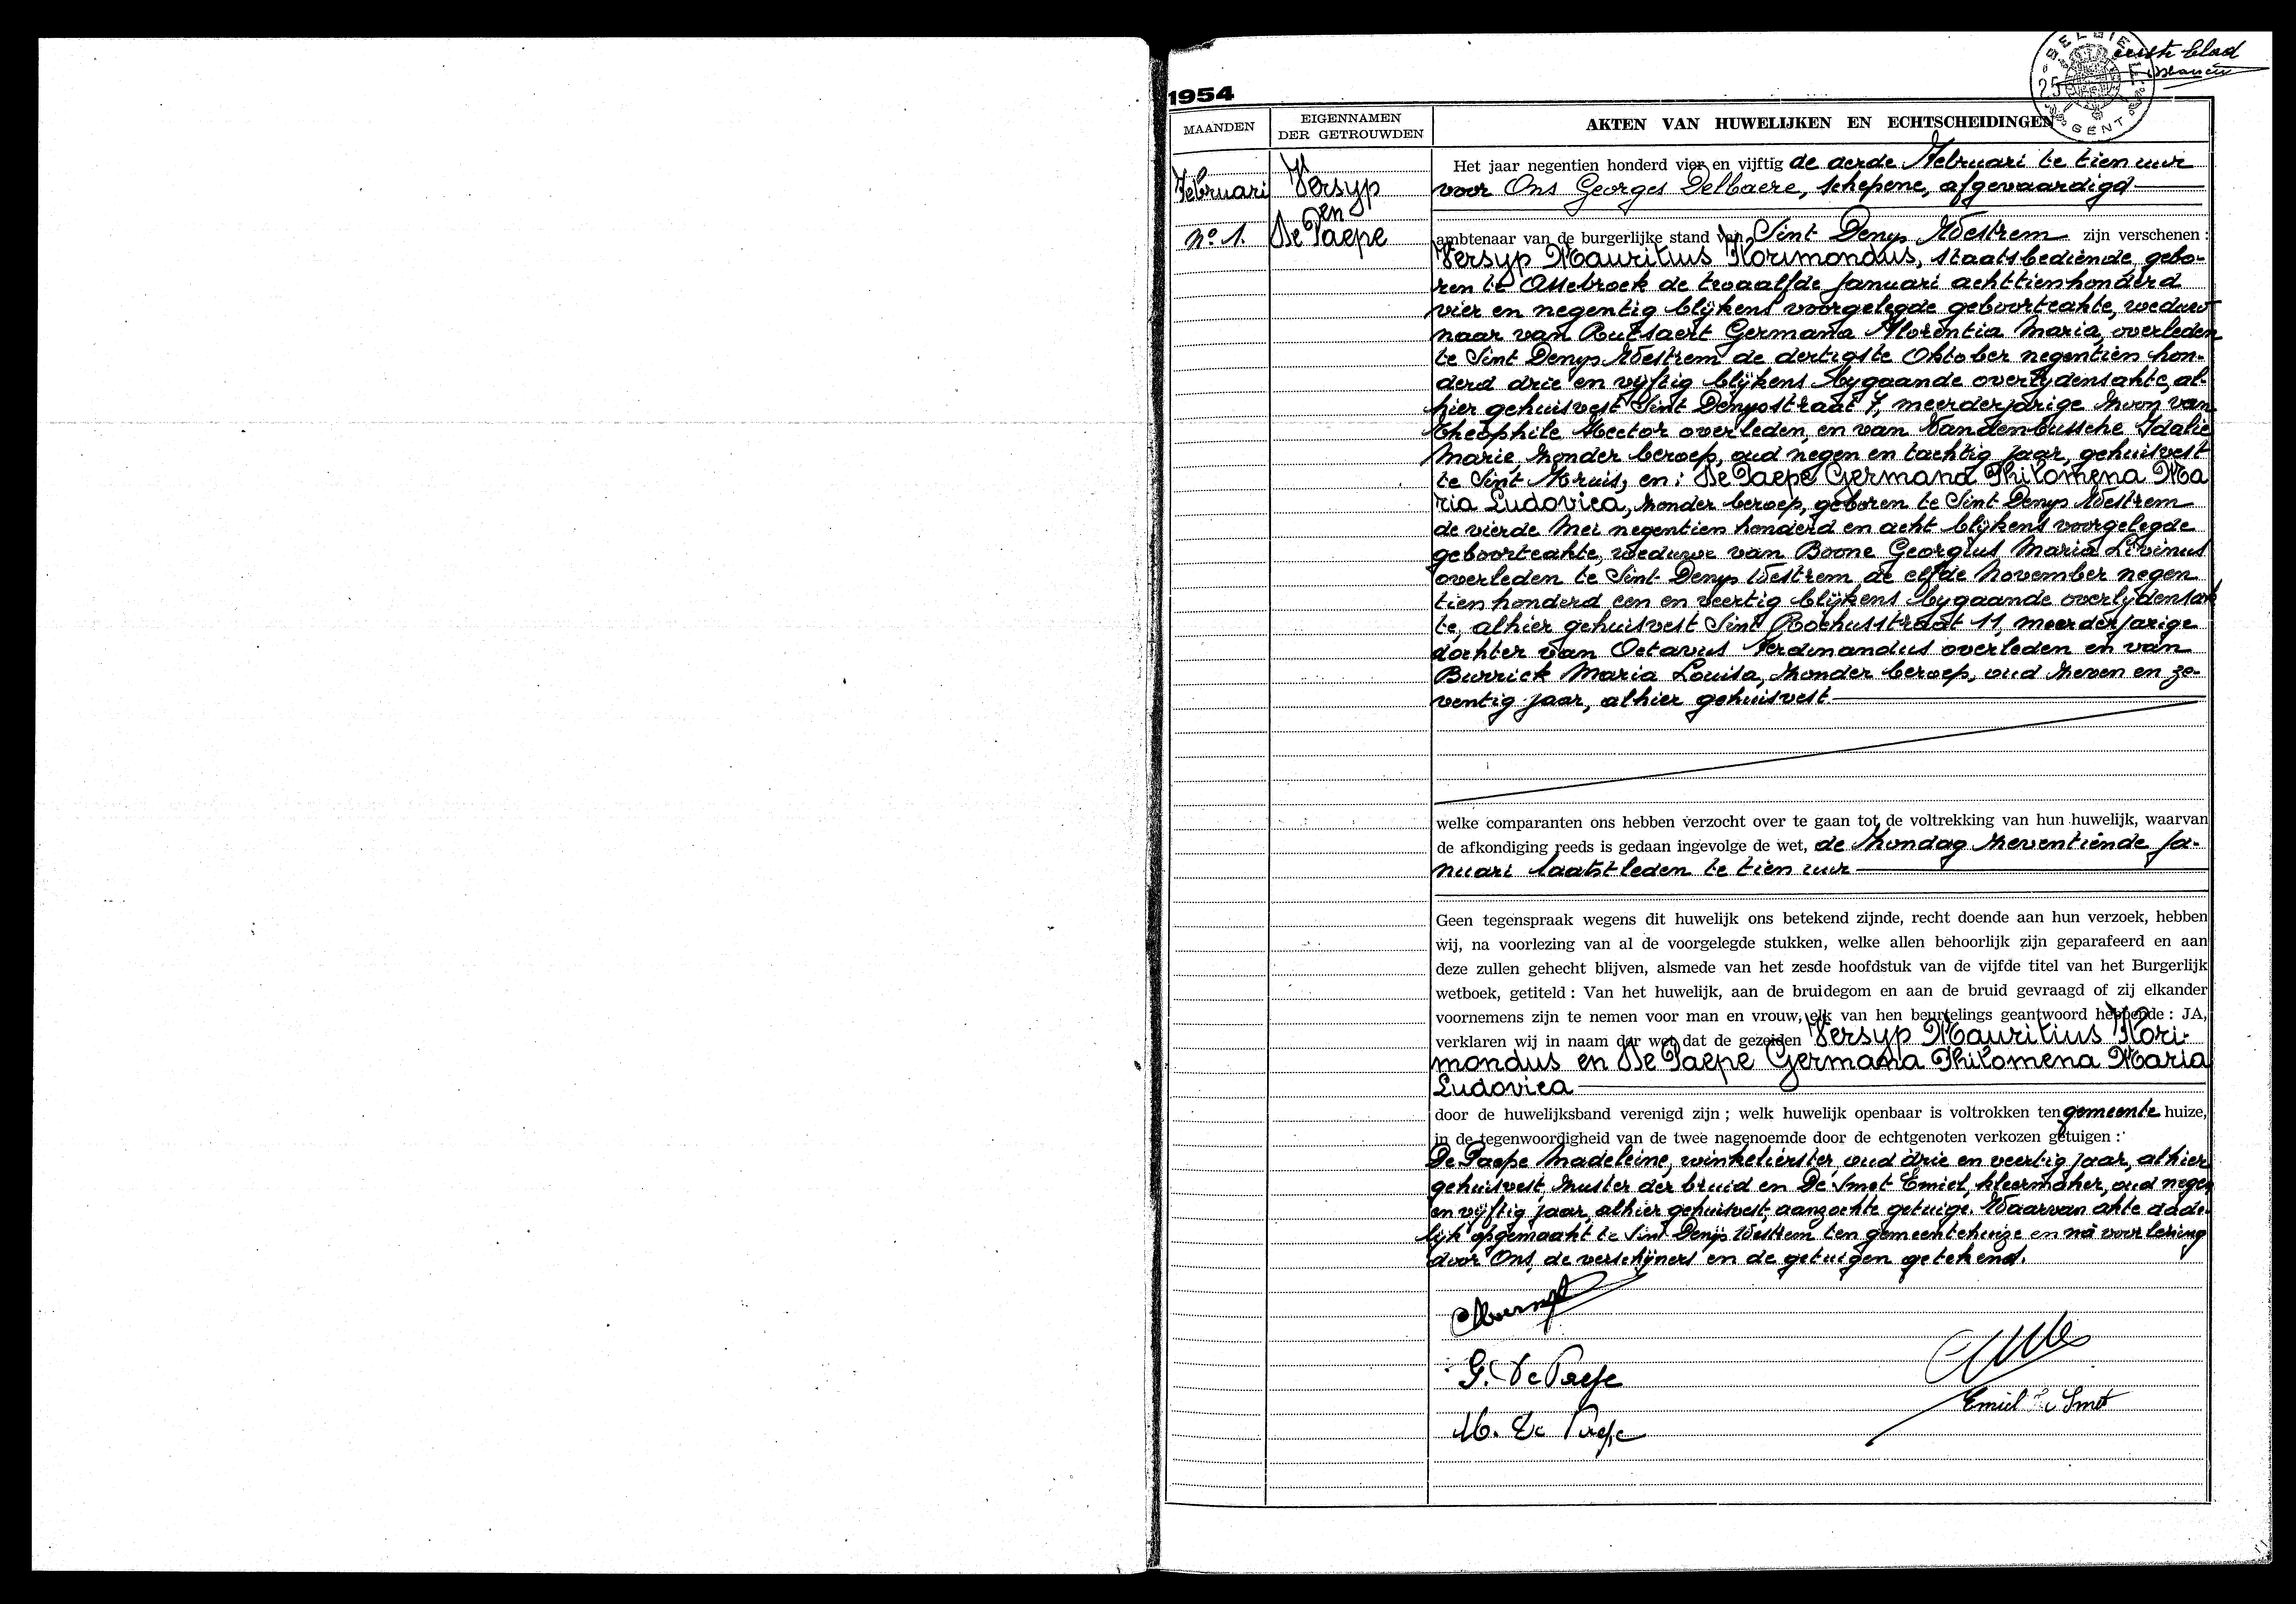 eerste blad
BELGIE
25
GENT
1954
MAANDEN
EIGENNAMEN
DER GETROUWDEN
AKTEN VAN HUWELIJKEN EN ECHTSCHEIDINGEN
Februari
No 1.
Versyp
en
De Paepe
Het jaar negentien honderd vier en vijftig de derde Februari te tien uur
voor Ons Georges Delbaere, schepene, afgevaardigd
ambtenaar van de burgerlijke stand van Sint Denys Westrem zijn verschenen :
Versyp Mauritius Florimondus, staatsbediende, gebo-
ren te Assebroek de twaalfde Januari achttienhonderd
vier en negentig blijkens voorgelegde geboorteakte, weduw
naar van Rutsaert Germana Florentia Maria, overleden
te Sint Denys Westrem de dertigste Oktober negentien hon-
derd drie en vyftig blijkens bygaande overlydensakte, al-
hier gehuisvest Sint Denysstraat 7, meerderjarige zoon van
Theophile Hector overleden, en van Vandenbussche Idalie
Marie, zonder beroep, oud negen en tachtig jaar, gehuisvest
te Sint Kruis, en : De Paepe Germana Philomena Ma
ria Ludovica, zonder beroep, geboren te Sint Denys Westrem
de vierde Mei negentien honderd en acht blijkens voorgelegde
geboorteakte, weduwe van Boone Georgius Maria Livinus
overleden te Sint Denys Westrem de elfde November negen
tien honderd een en veertig blijkens bygaande overlijdensak
te, alhier gehuisvest Sint Rochusstraat 11, meerderjarige
dochter van Octavus Ferdinandus overleden en van
Burrick Maria Louisa, zonder beroep, oud zeven en ze-
ventig jaar, alhier gehuisvest
welke comparanten ons hebben verzocht over te gaan tot de voltrekking van hun huwelijk, waarvan
de afkondiging reeds is gedaan ingevolge de wet, de Zondag zeventiende Ja-
nuari laatstleden te tien uur
Geen tegenspraak wegens dit huwelijk ons betekend zijnde, recht doende aan hun verzoek, hebben
wij, na voorlezing van al de voorgelegde stukken, welke allen behoorlijk zijn geparafeerd en aan
deze zullen gehecht blijven, alsmede van het zesde hoofdstuk van de vijfde titel van het Burgerlijk
wetboek, getiteld : Van het huwelijk, aan de bruidegom en aan de bruid gevraagd of zij elkander
voornemens zijn te nemen voor man en vrouw, elk van hen beurtelings geantwoord hebbende : JA,
verklaren wij in naam der wet dat de gezeiden Versyp Mauritius Flori-
mondus en De Paepe Germana Philomena Maria
Ludovica
door de huwelijksband verenigd zijn ; welk huwelijk openbaar is voltrokken ten gemeente huize,
in de tegenwoordigheid van de twee nagenoemde door de echtgenoten verkozen getuigen :
De Paepe Madeleine, winkelierster, oud drie en veertig jaar, alhier
gehuisvest, zuster der bruid en De Smet Emiel, kleermaker, oud negen
en vyftig jaar, alhier gehuisvest, aanzochte getuige. Waarvan akte dade-
lijk opgemaakt te Sint Denijs Westrem ten gemeentehuize en na voorlezing
door Ons, de verschijners en de getuigen getekend.
G. De Paepe
Emiel De Smet
M. De Paepe